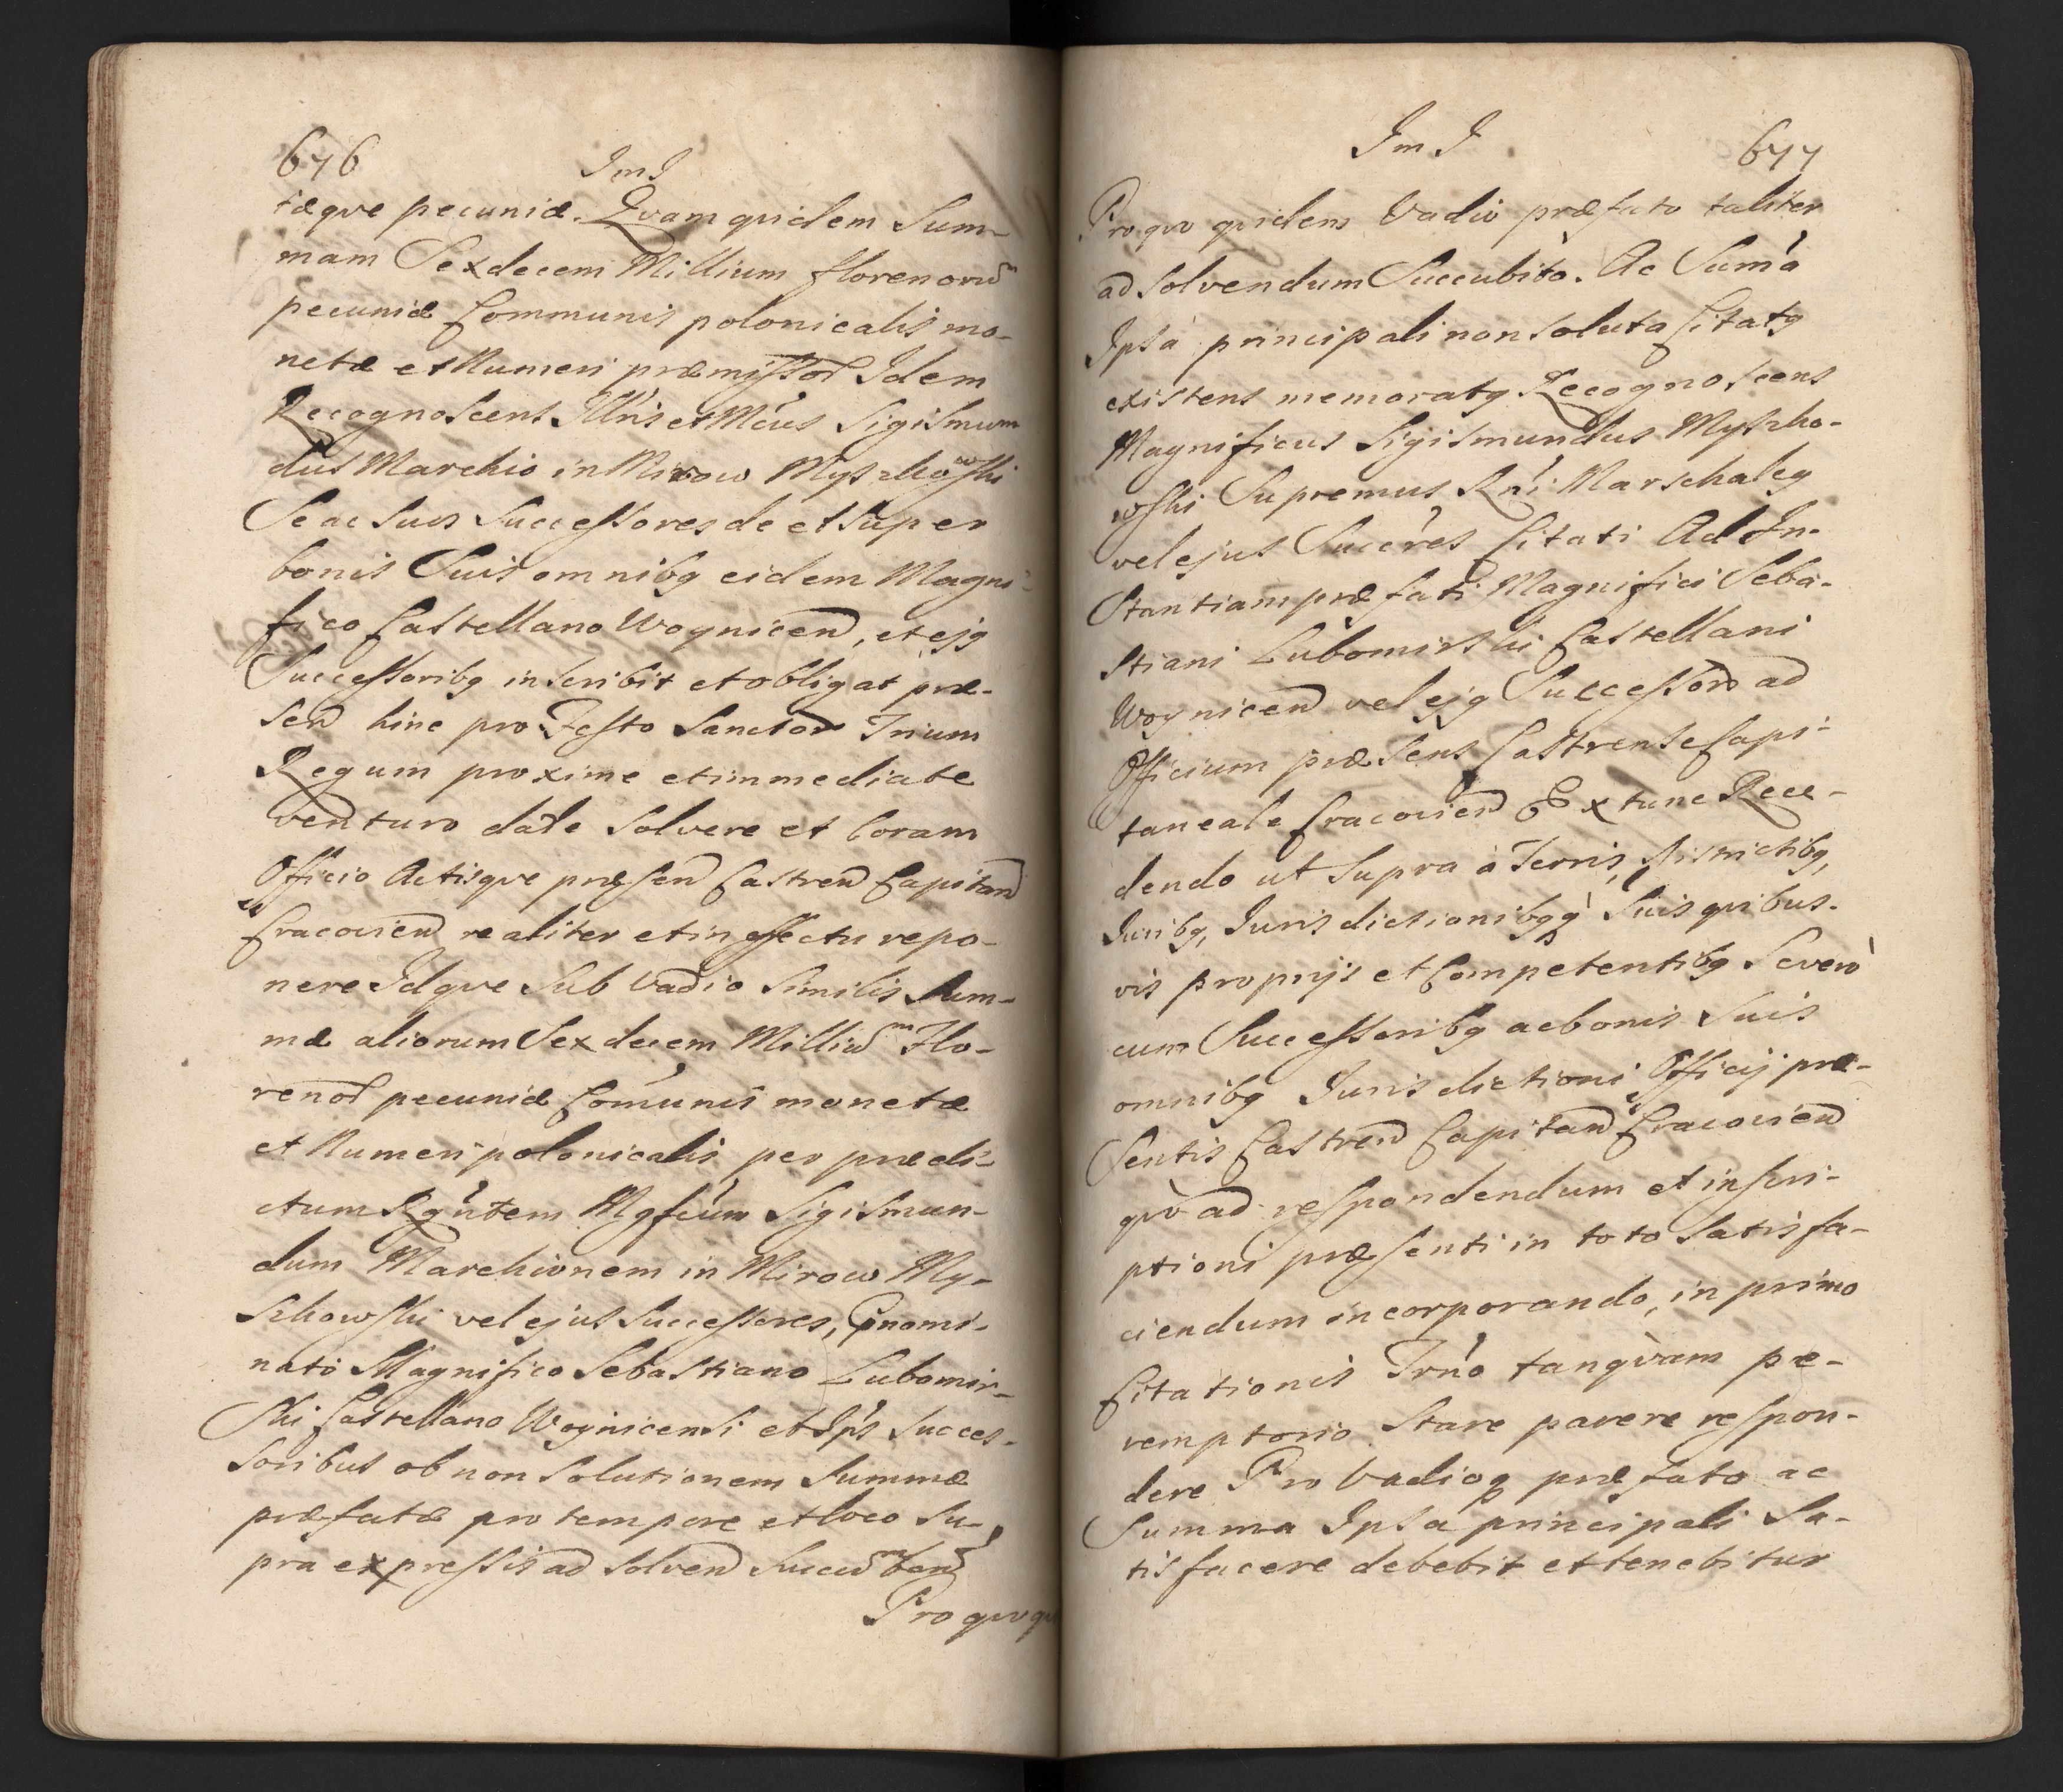 676
ImI
tæque pecuniæ. Quam quidem Sum-
mam Sexdecem Millium florenorũ
pecuniæ Communis polonicalis mo-
netæ et Numeri præmissor Idem
Recognoscens Illr̃is et Mćus Sigismun
dus Marchio in Mirow Myszkowski
Se ac Suos Successores de et Super
bonis Suis omnibq eidem Magni-
fico Castellano Woynicen, et ejq
Successoribq inscribit et obligat præ-
sen hinc pro Festo Sanctor Trium
Regum proxime et immediate
venturo dare Solvere et Coram
Officio Actisque præsen Castren Capitan
Cracovien realiter et in effectu repo-
nere Idque Sub Vadio Similis Sum-
mæ aliorum Sex decem Milliũ Flo-
renor pecuniæ Com̃unis monetæ
et Numeri polonicalis per prædi-
ctum Rgñtem Mgfcum Sigismun-
dum Marchionem in Mirow My-
szkowski vel ejus Successores, Pnomi-
nato Magnifico Sebastiano Lubomir-
ski Castellano Woynicensi et Ips Succes-
soribus ob non Solutionem Summæ
præfatæ pro tempore et loco Su-
pra expressis ad Solven Succũben
Pro quo qu
ImI
677
Pro quo quidem Vadio præfato taliter
ad Solvendum Succubito. Ac Sum̃a
Ipsa principali non Soluta Citatq
existens memoratq Recognoscens
Magnificus Sigismundus Myszko-
wski Supremus Rńi Marschalcq
vel ejus Succr̃es Citati Ad In-
Stantiam præfati Magnifici Seba-
stiani Lubomirski Castellani
Woynicen vel ejq Successorũ ad
Officium præsens Castrense Capi-
taneale Cracovien Ex tunc Rece-
dendo ut Supra à Terris, Districtibq,
Juribq, Jurisdictionibqq Suis quibus-
vis proprijs et Competentibq Severò
cum Successoribq ac bonis Suis
omnibq Jurisdictioni Officij præ-
Sentis Castren Capitan Cracovien
quò ad respondendum et inscri-
ptioni præsenti in toto Satisfa-
ciendum incorporando, in primo
Citationis Trńo tanquàm pe-
remptorio Stare parere respon-
dere Pro Vadioq præfato ac
Summa Ipsa principali Sa-
tisfacere debebit et tenebitur